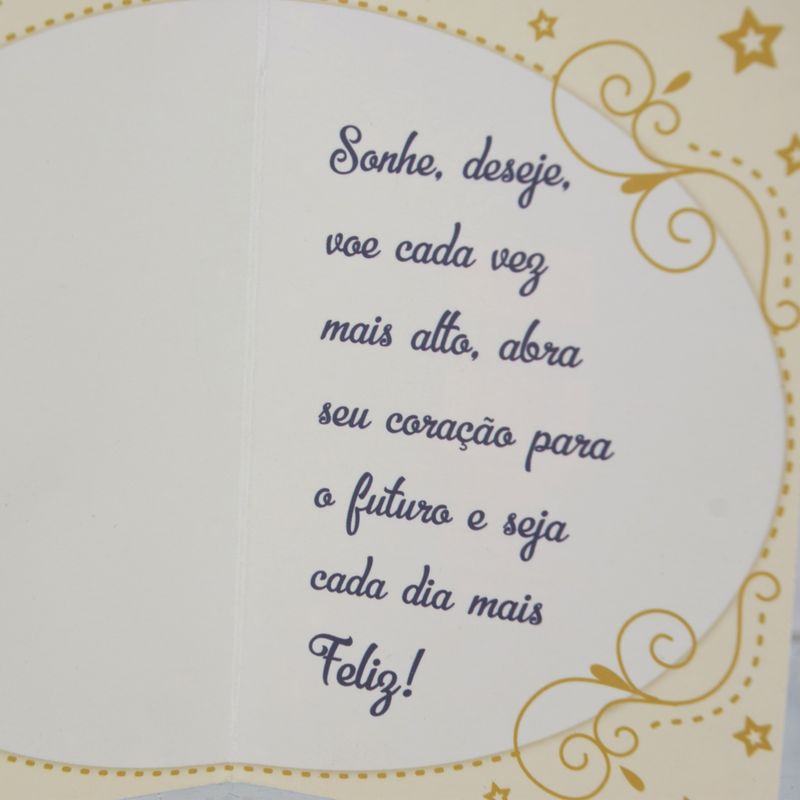 Sonhe, deseje,
voe cada vez
mais alto, abra
seu coração para
o futuro e seja
cada dia mais
Feliz!